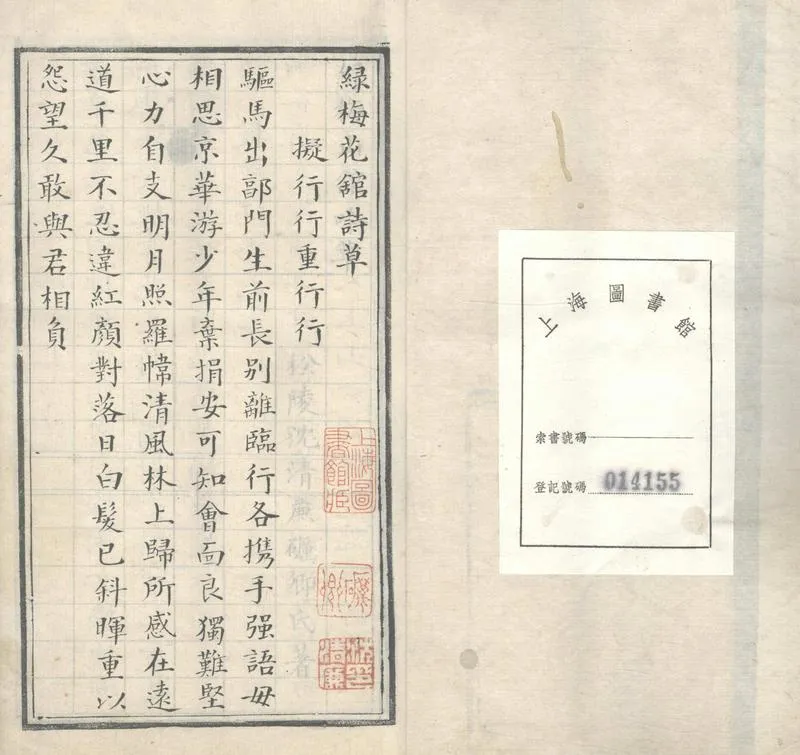 上海圖書館
索書號碼
登記號碼 014155
綠梅花舘詩草
擬行行重行行
驅馬出郭門生前長别離臨行各携手强語毋
相思京華游少年棄捐安可知會靣良獨難堅
心力自支明月照羅幃清風林上歸所感在遠
道千里不忍違紅顏對落日白髮已斜暉重以
怨望久敢與君相負
上海圖書館藏